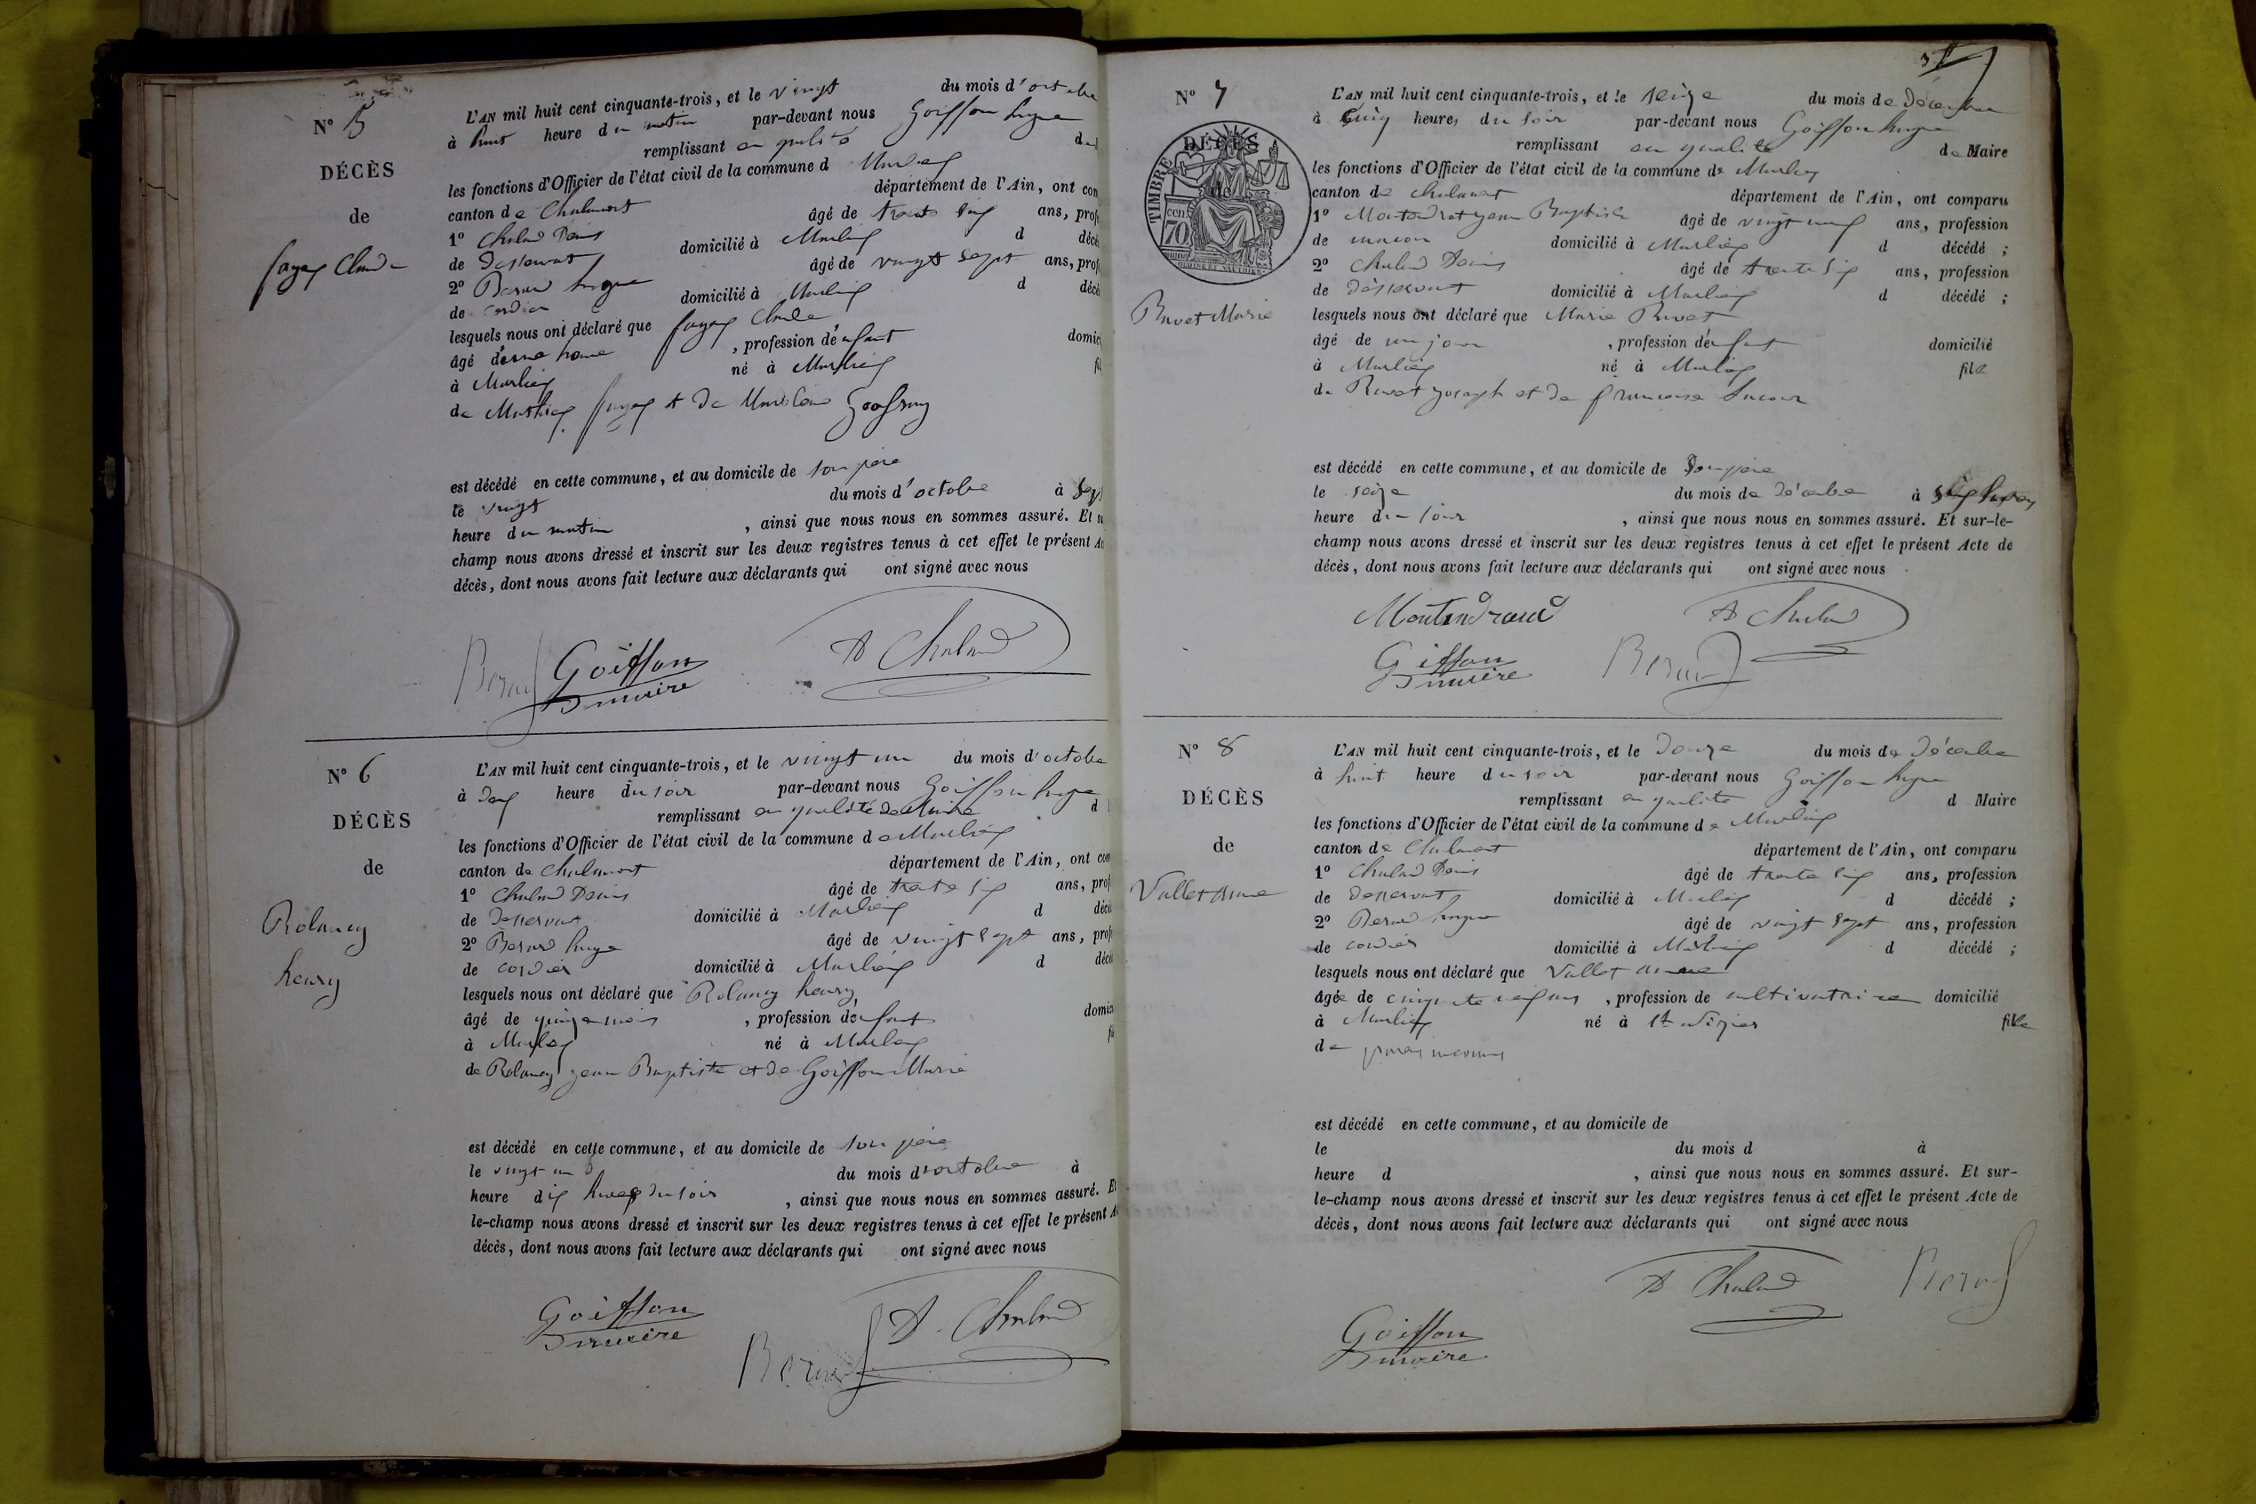 N° 5
DÉCÈS
de
fayey Claude
L'AN mil huit cent cinquante-trois, et le vingt du mois d'octobre
à huit heure du matin par-devant nous Goiffon hugue
remplissant en qualité d
les fonctions d'Officier de l'état civil de la commune d Marlieg
canton de Chalamont département de l'Ain, ont com
1° Chaland Denis âgé de trente six ans, prof
de desservant domicilié à Marlieg d décé
2° Berard hugue âgé de vingt sept ans, prof
de cordier domicilié à Marlieg d décé
lesquels nous ont déclaré que fayey Claude
âgé d'une heure , profession d'enfant domic
à Marlieg né à Marlieg fil
de Mathieg fayey et de
est décédé en cette commune, et au domicile de son père
le vingt du mois d'octobre à sept
heure du matin , ainsi que nous nous en sommes assuré. Et s
champ nous avons dressé et inscrit sur les deux registres tenus à cet effet le présent Ac
décès, dont nous avons fait lecture aux déclarants qui ont signé avec nous
Berard Goiffon maire D Chaland
N° 6
DÉCÈS
de
Rolancy
henry
L'AN mil huit cent cinquante-trois, et le vingt un du mois d'octobre
à dix heure du soir par-devant nous Goiffon hugue
remplissant en qualité de Maire d
les fonctions d'Officier de l'état civil de la commune de Marlieg
canton de Chalamont département de l'Ain, ont com
1° Chaland Denis âgé de trente six ans, prof
de desservant domicilié à Marlieg d décé
2° Berard hugue âgé de vingt sept ans, profe
de cordier domicilié à Marlieg d décé
lesquels nous ont déclaré que Rolancy henry
âgé de quinze mois , profession d'enfant domici
à Marlieg né à Marlieg fi
de Rolancy jean Baptiste et de Goiffon Marie
est décédé en cette commune, et au domicile de son père
le vingt un du mois d'octobre à
heure dix heures du soir , ainsi que nous nous en sommes assuré. Et
le-champ nous avons dressé et inscrit sur les deux registres tenus à cet effet le présent A
décès, dont nous avons fait lecture aux déclarants qui ont signé avec nous
Goiffon maire
Berard D. Chaland
N° 7
DÉCÈS
de
TIMBRE
cen 70
Ruvet Marie
L'AN mil huit cent cinquante-trois, et le seize du mois de Décembre
à cinq heures du soir par-devant nous Goiffon hugue
remplissant en qualité de Maire
les fonctions d'Officier de l'état civil de la commune de Marlieg
canton de chalamont département de l'Ain, ont comparu
1° jean Baptiste âgé de vingt neuf ans, profession
de macon domicilié à Marlieg d décédé ;
2° Chaland Denis âgé de trente six ans, profession
de desservant domicilié à Marlieg d décédé ;
lesquels nous ont déclaré que Marie Ruvet
âgé de un jour , profession d'enfant domicilié
à Marlieg né à Marlieg fille
de Ruvet joseph et de francoise
est décédé en cette commune, et au domicile de Son père
le seize du mois de décembre à
heure du soir , ainsi que nous nous en sommes assuré. Et sur-le-
champ nous avons dressé et inscrit sur les deux registres tenus à cet effet le présent Acte de
décès, dont nous avons fait lecture aux déclarants qui ont signé avec nous
D Chaland
Goiffon maire Berard
N° 8
DÉCÈS
de
Vallet anne
L'AN mil huit cent cinquante-trois, et le Douze du mois de Décembre
à huit heure du soir par-devant nous Goiffon hugue
remplissant en qualité d Maire
les fonctions d'Officier de l'état civil de la commune de Marlieg
canton de Chalamont département de l'Ain, ont comparu
1° Chaland Denis âgé de trente six ans, profession
de desservant domicilié à Marlieg d décédé ;
2° Berard hugue âgé de vingt sept ans, profession
de cordier domicilié à Marlieg d décédé ;
lesquels nous ont déclaré que Vallet anne
âgée de cinquante neuf ans , profession de cultivatrice domicilié
à Marlieg né à St nizier fille
de
est décédé en cette commune, et au domicile de
le du mois d à
heure d , ainsi que nous nous en sommes assuré. Et sur-
le-champ nous avons dressé et inscrit sur les deux registres tenus à cet effet le présent Acte de
décès, dont nous avons fait lecture aux déclarants qui ont signé avec nous
D Chaland Berard
Goiffon maire